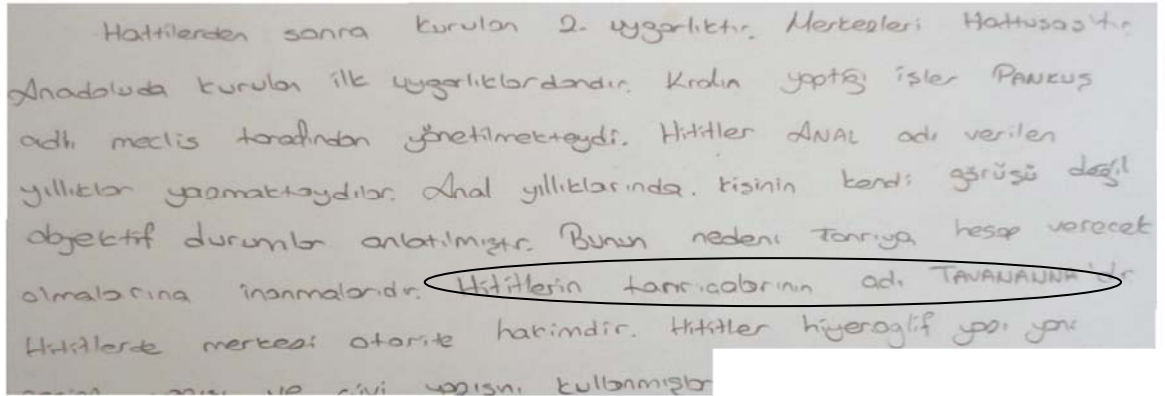 Hattilerden sonra kurulan 2. uygarlıktır. Merkezleri Hattusas'tır
Anadoluda kurulan ilk uygarlıklardandır. Kralın yaptığı işler PANKUŞ
adlı meclis tarafından yönetilmekteydi. Hititler ANAL adı verilen
yıllıklar yazmaktaydılar. Anal yıllıklarında. kişinin kendi görüşü değil
objektif durumlar anlatılmıştır. Bunun nedeni Tanrıya hesap verecek
olmalarına inanmalarıdır. Hititlerin tanrıçalarının adı TAVANANNA'dır
Hititlerde merkezi otorite hakimdir. Hititler hiyeroglif yazı yani
ve çivi yazısını kullanmışlar